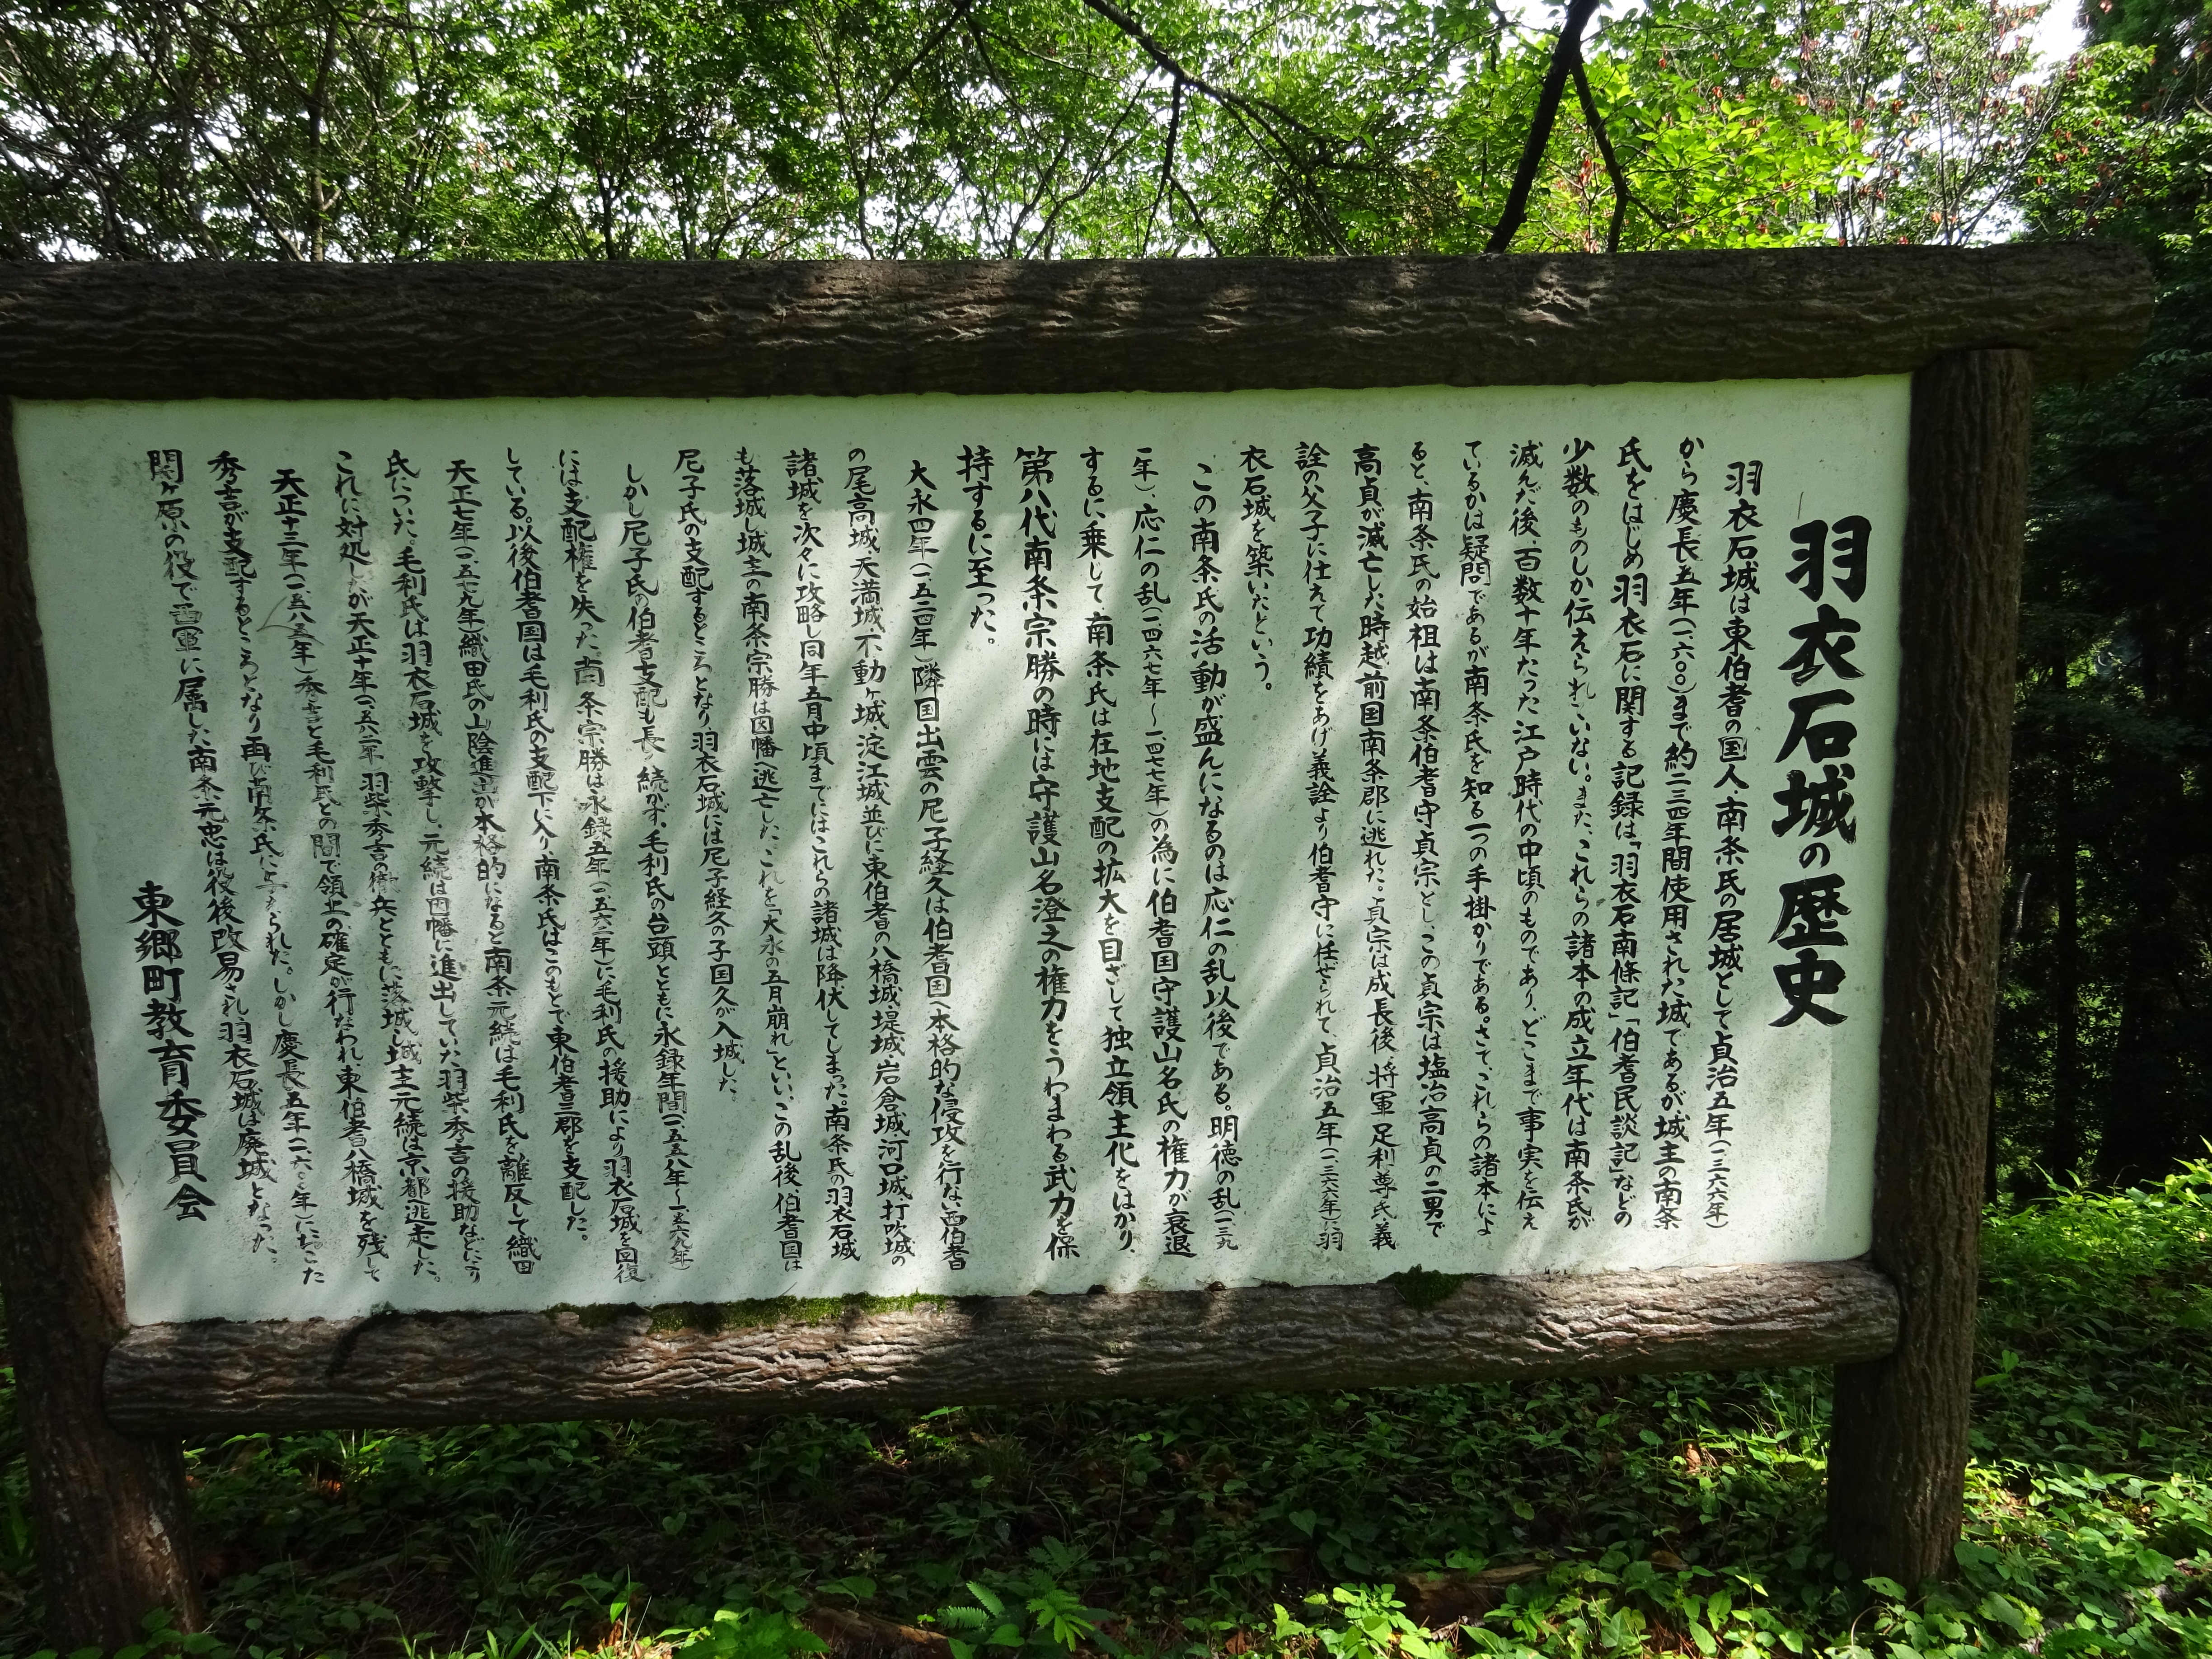 羽衣石城の歴史
羽衣石城は東伯耆の国人・南条氏の居城として貞治五年(一三六六年)
から慶長五年(一六〇〇)まで約二三四年間使用された城であるが、城主の南条
氏をはじめ羽衣石に関する記録は、「羽衣石南條記」「伯耆民談記」などの
少数のものしか伝えられていない。また、これらの諸本の成立年代は南条氏が
滅んだ後、百数十年たった江戸時代の中頃のものであり、どこまで事実を伝え
ているかは疑問であるが南条氏を知る一つの手掛かりである。さて、これらの諸本によ
ると、南条氏の始祖は南条伯耆守貞宗とし、この貞宗は塩冶高貞の二男で
高貞が滅亡した時越前国南条郡に逃れた。貞宗は成長後、将軍足利尊氏義
詮の父子に仕えて功績をあげ義詮より伯耆守に任ぜられて、貞治五年(一三六六年)に羽
衣石城を築いたという。
この南条氏の活動が盛んになるのは応仁の乱以後である。明徳の乱(一三九
一年)、応仁の乱(一四六七年～一四七七年)の為に伯耆国守護山名氏の権力が衰退
するに乗じて、南条氏は在地支配の拡大を目ざして独立領主化をはかり、
第八代南条宗勝の時には守護山名澄之の権力をうわまわる武力を保
持するに至った。
大永四年(一五二四年)隣国出雲の尼子経久は伯耆国へ本格的な侵攻を行ない西伯耆
の尾高城天満城、不動ヶ城、淀江城並びに東伯耆の八橋城堤城岩倉城河口城、打吹城の
諸城を次々に攻略し同年五月中頃までにはこれらの諸城は降伏してしまった。南条氏の羽衣石城
も落城し城主の南条宗勝は因幡へ逃亡した。これを「大永の五月崩れ」といい、この乱後伯耆国は
尼子氏の支配するところとなり、羽衣石城には尼子経久の子国久が入城した。
しかし尼子氏の伯耆支配も長く続かず、毛利氏の台頭とともに永録年間(一五五八年～一五六九年)
には支配権を失った。南条宗勝は永録五年(一五六二年)に毛利氏の援助により羽衣石城を回復
している。以後伯耆国は毛利氏の支配下に入り、南条氏はこのもとで東伯耆三郡を支配した。
天正七年(一五七九年)織田氏の山陰進出が本格的になると南条元続は毛利氏を離反して織田
氏についた。毛利氏は羽衣石城を攻撃し、元続は因幡に進出していた羽柴秀吉の援助などにより
これに対処したが天正十年(一五八二年)羽柴秀吉の撤兵とともに落城し城主元続は京都逃走した。
天正十三年(一五八五年)秀吉と毛利氏との間で領土の確定が行なわれ、東伯耆は八橋城を残して
秀吉が支配するところとなり再び南条氏に与えられた。しかし慶長五年(一六〇〇年)におこった
関ヶ原の役で西軍に属した南条元忠は役後改易され、羽衣石城は廃城となった。
東郷町教育委員会